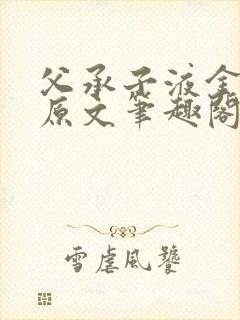 父承子液全
原文笔趣阁
雪虐风饕